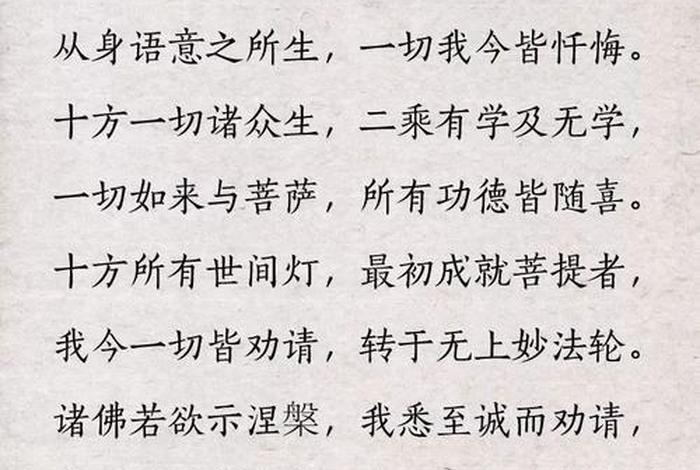 从身语意之所生，一切我今皆忏悔。
十方一切诸众生，二乘有学及无学，
一切如来与菩萨，所有功德皆随喜。
十方所有世间灯，最初成就菩提者，
我今一切皆劝请，转于无上妙法轮。
诸佛若欲示涅槃，我悉至诚而劝请，